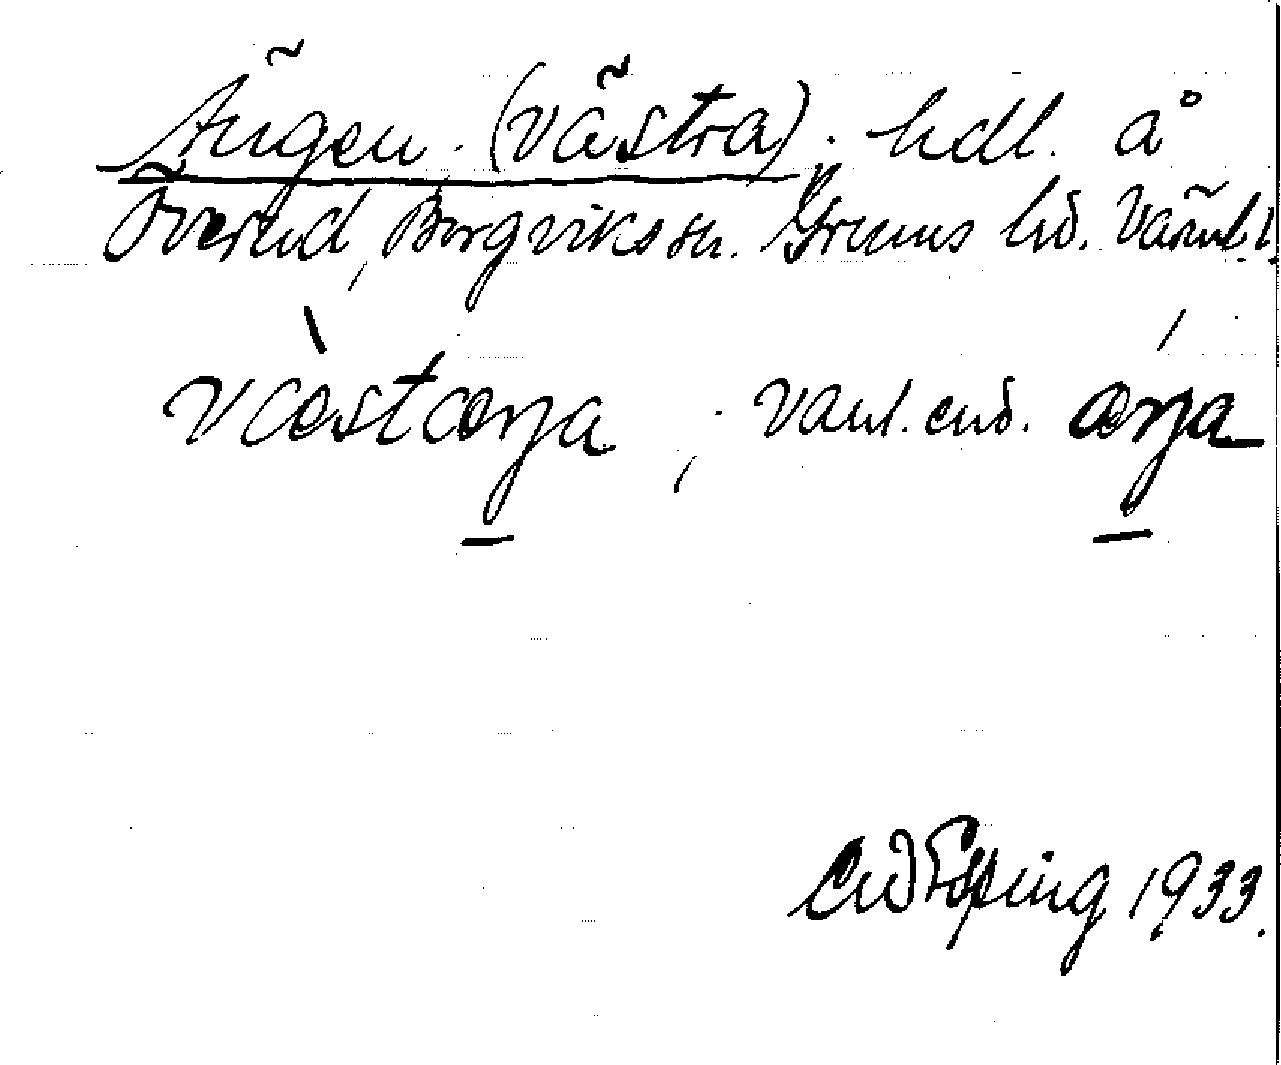 Ängen (västra). hdl. å
Överud, Borgviks sn. Grums hd. Värml. l.
væ̀stæŋa, vanl. end. ǽŋa
1933.